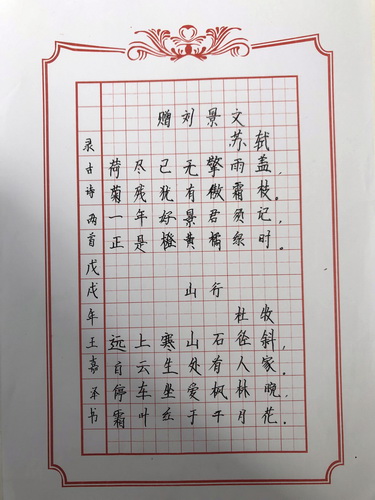 赠刘景文
苏轼
荷尽已无擎雨盖,
菊残犹有傲霜枝。
一年好景君须记,
正是橙黄橘绿时。
山行
杜牧
远上寒山石径斜,
白云生处有人家。
停车坐爱枫林晚,
霜叶红于二月花。
录古诗两首戊戌年王嘉书